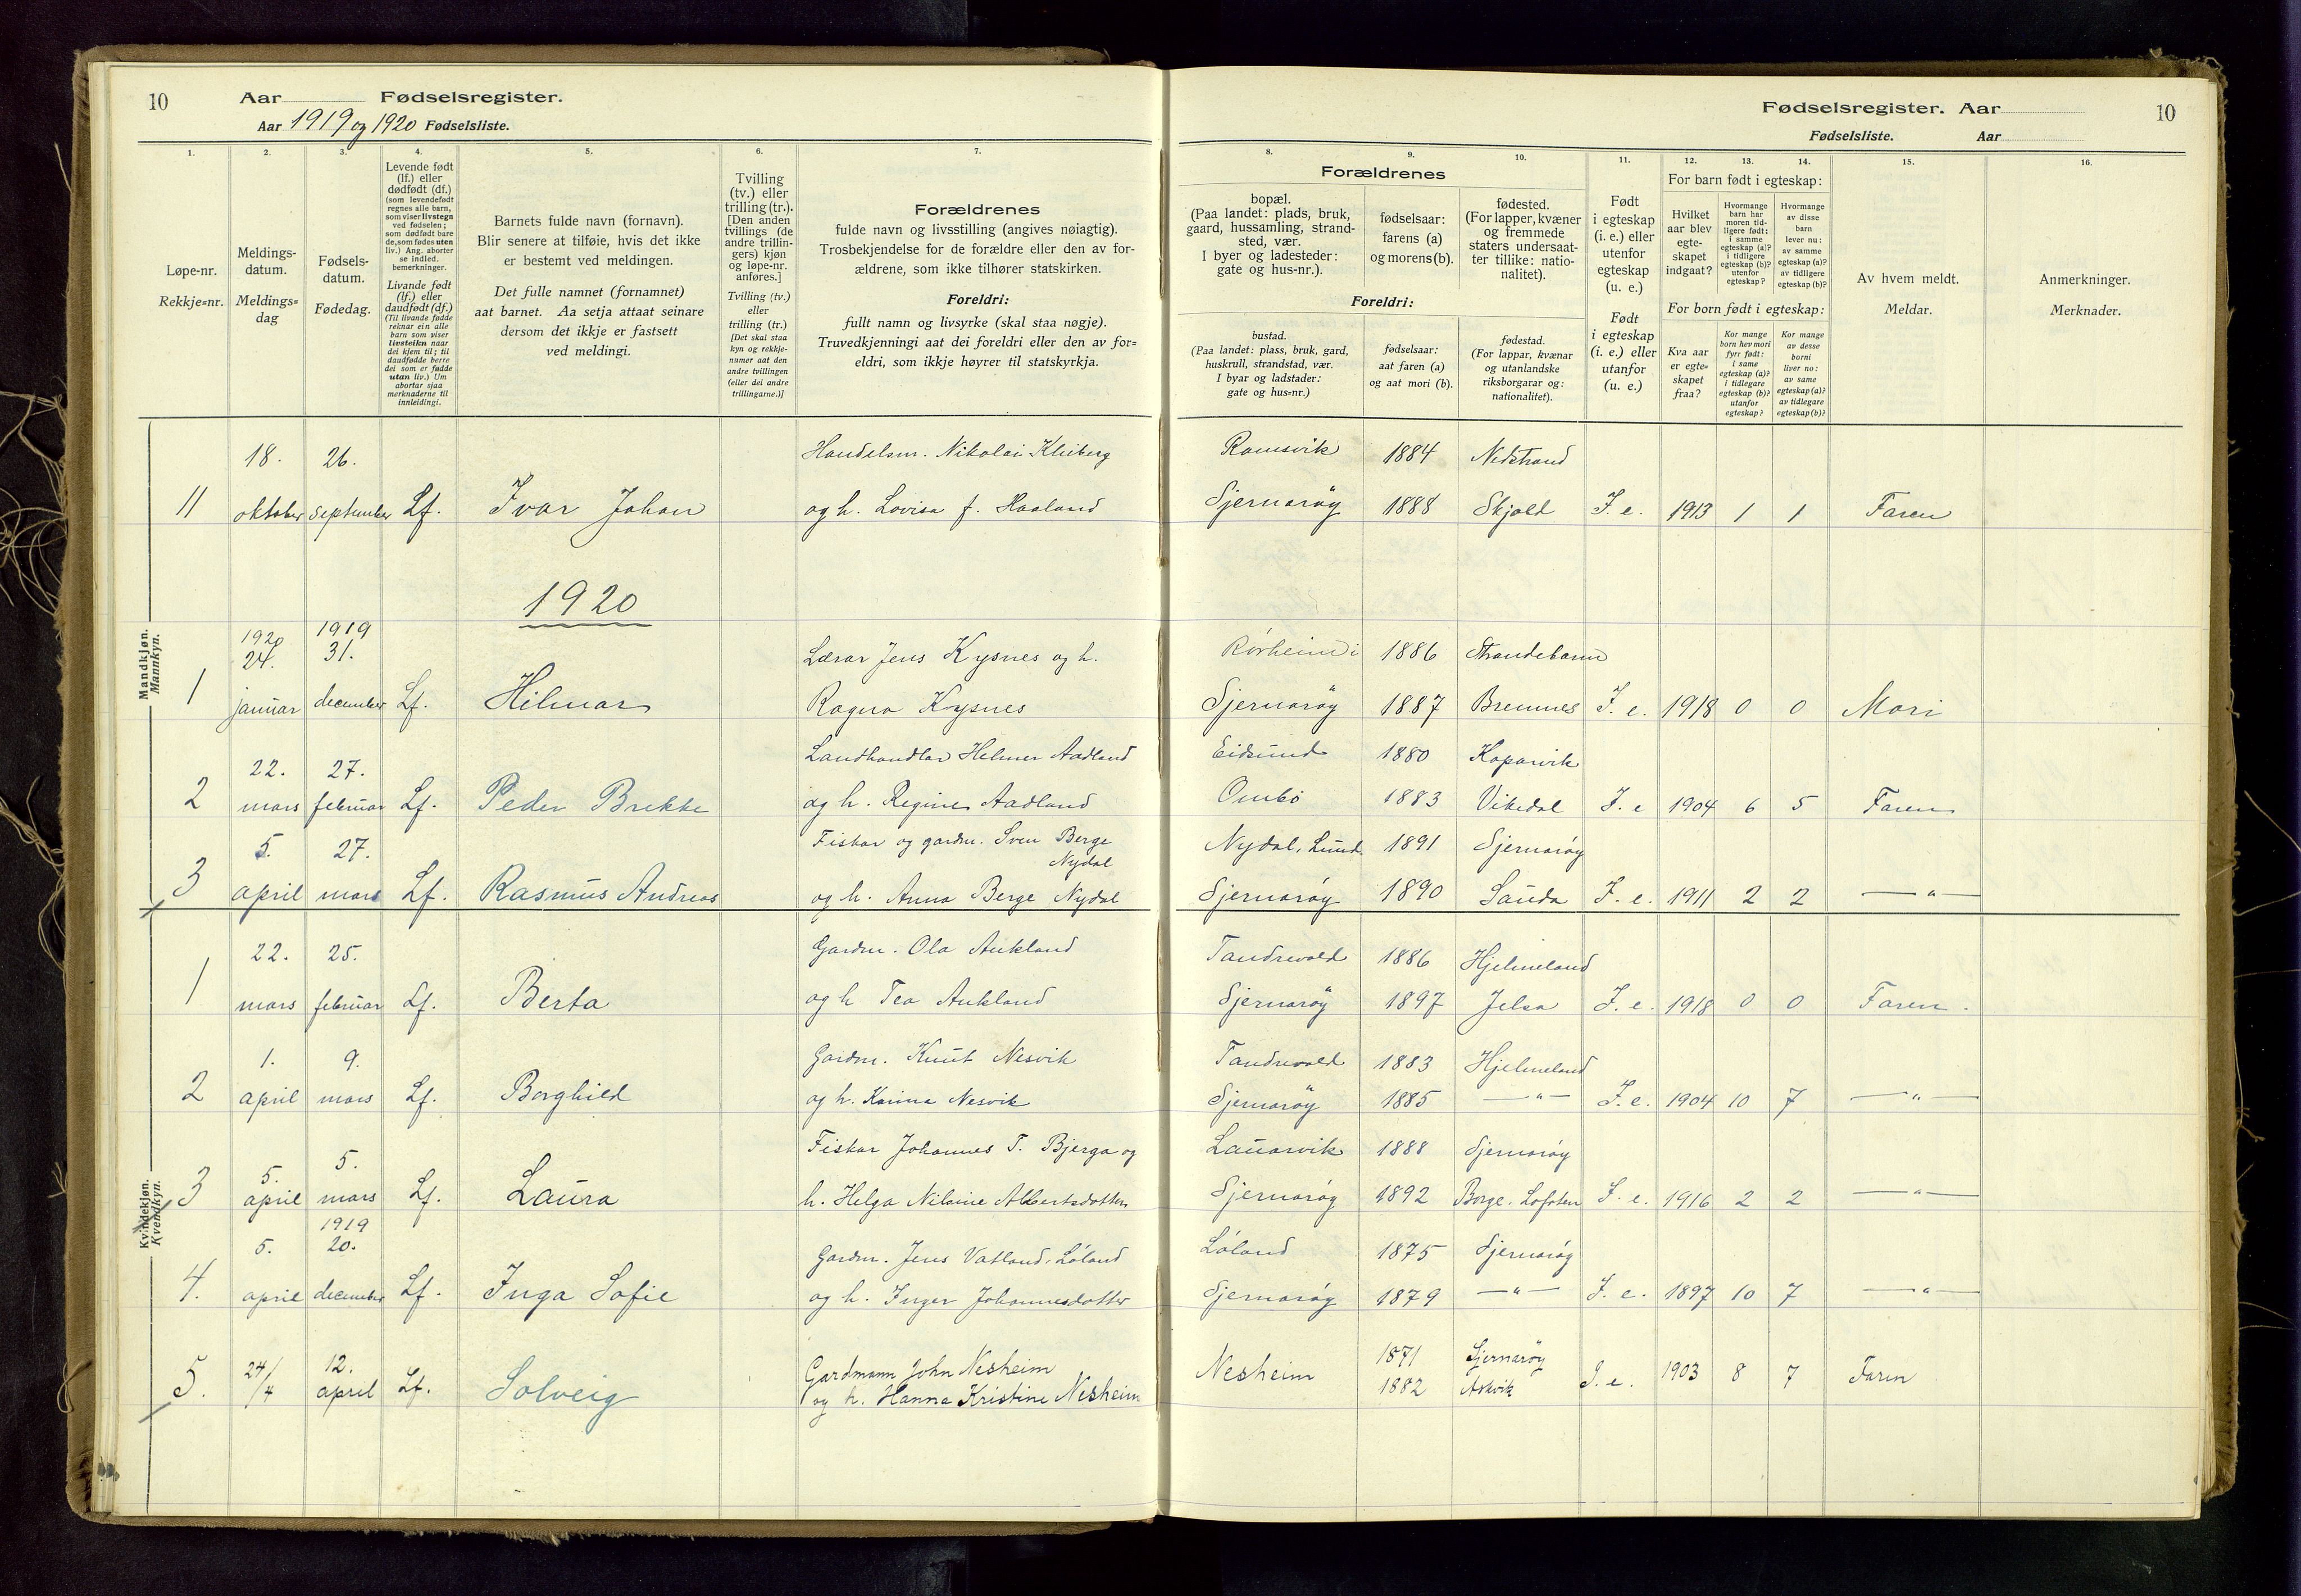 10
Aar Fødselsregister.
Aar 1919 og 1920 Fødselsliste.
Fødselsregister. Aar
10
Fødselsliste. Aar
1.
Løpe-nr.
Rekkje=nr.
2.
Meldings-
datum.
Meldings=
dag
3.
Fødsels-
datum.
Fødedag.
4.
Levende født
(lf.) eller
dødfødt (df.)
(som levendefødt
regnes alle barn,
som viser livstegn
ved fødselen;
som dødfødt bare
de, som fødes uten
liv.) Ang. aborter
se indled.
bemerkninger.
Livande født
(lf.) eller
daudfødt (df.)
(Til livande fødde
reknar ein alle
barn som viser
livsteikn naar
dei kjem til; til
daudfødde berre
dei som er fødde
utan liv.) Um
abortar sjaa
merknaderne til
innleidingi.
5.
Barnets fulde navn (fornavn).
Blir senere at tilføie, hvis det ikke
er bestemt ved meldingen.
Det fulle namnet (fornamnet)
aat barnet. Aa setja attaat seinare
dersom det ikkje er fastsett
ved meldingi.
6.
Tvilling
(tv.) eller
trilling (tr.).
[Den anden
tvillings (de
andre trillin-
gers) kjøn
og løpe-nr.
anføres.]
Tvilling (tv.)
eller
trilling (tr.)
[Det skal staa
kyn og rekkje-
numer aat den
andre tvillingen
(eller dei andre
trillingarne.)]
7.
Forældrenes
fulde navn og livsstilling (angives nøiagtig).
Trosbekjendelse for de forældre eller den av for-
ældrene, som ikke tilhører statskirken.
Foreldri:
fullt namn og livsyrke (skal staa nøgje).
Truvedkjenningi aat dei foreldri eller den av for=
eldri, som ikkje høyrer til statskyrkja.
Forældrenes
8.
bopæl.
(Paa landet: plads, bruk,
gaard, hussamling, strand-
sted, vær.
I byer og ladesteder:
gate og hus-nr.).
9.
fødselsaar:
farens (a)
og morens (b).
10.
fødested.
(For lapper, kvæner
og fremmede
staters undersaat-
ter tillike: natio-
nalitet).
Foreldri:
bustad.
(Paa landet: plass, bruk, gard,
huskrull, strandstad, vær.
I byar og ladstader:
gate og hus=nr.)
fødselsaar:
aat faren (a)
og aat mori (b).
fødestad.
(For lappar, kvænar
og utanlandske
riksborgarar og:
nationalitet).
11.
Født
i egteskap
(i. e.) eller
utenfor
egteskap
(u. e.)
Født
i egteskap
(i. e.) eller
utanfor
(u. e.)
12.
13.
14.
For barn født i egteskap:
Hvilket
aar blev
egte-
skapet
indgaat?
Hvormange
barn har
moren tid-
ligere født:
i samme
egteskap (a)?
i tidligere
egteskap (b)?
utenfor
egteskap?
Hvormange
av disse
barn
lever nu:
av samme
egteskap (a)?
av tidligere
egteskap (b)?
For born født i egteskap:
Kva aar
er egte=
skapet
fraa?
Kor mange
born hev mori
fyrr født:
i same
egteskap (a)?
i tidlegare
egteskap (b)?
utanfor
egteskap?
Kor mange
av desse
borni
liver no:
av same
egteskap (a)?
av tidlegare
egteskap (b)?
15.
Av hvem meldt.
Meldar.
16.
Anmerkninger.
Merknader.
Mandkjøn.
Mannkyn.
18. 26. Handelsm. Nikolai Kleiberg Ramsvik 1884 Nedstrand
11 oktober september Lf. Ivar Johan og h. Lovisa f. Haaland Sjernarøy 1888 Skjold I. e. 1913 1 1 Faren
1920
1920 1919
24. 31. Lærar Jens Kysnes og h. Rørheim i 1886 Strandebarm
1 januar december Lf. Hilmar Ragna Kysnes Sjernarøy 1887 Bremnes I. e. 1918 0 0 Mori
22. 27. Landhandlar Helmer Aadland Eidsund 1880 Kopervik
2 mars februar Lf. Peder Brekke og h. Regine Aadland Ombo 1883 Vikedal I. e 1904 6 5 Faren
5. 27. Fiskar og gardm. Sven Berge Nydal, Lund 1891 Sjernarøy
Nydal
3 april mars Lf. Rasmus Andreas og h. Anna Berge Nydal Sjernarøy 1890 Sauda I. e. 1911 2 2 — " —
22. 25. Gardm. Ola Aukland Tandrevold 1886 Hjelmeland
1 mars februar Lf. Berta og h Tea Aukland Sjernarøy 1897 Jelsa I. e. 1918 0 0 Faren.
1. 9. Gardm. Knut Nesvik Tandrevold 1883 Hjelmeland
2 april mars Lf. Borghild og h. Karina Nesvik Sjernarøy 1885 — " — I. e. 1904 10 7 — " —
Kvindekjøn.
Kvendkyn.
5. 5. Fiskar Johannes T. Bjerga og Lauarvik 1888 Sjernarøy
3 april mars Lf. Laura h. Helga Nilsine Albertsdotter Sjernarøy 1892 Borge, Lofoten I. e. 1916 2 2 — " —
1919
5. 20. Gardm. Jens Vatland, Løland Løland 1875 Sjernarøy
4. april december Lf. Inga Sofie og h. Inger Johannesdotter Sjernarøy 1879 — " — I. e. 1897 10 7 — " —
24/4 12. Gardmann John Nesheim Nesheim 1871 Sjernarøy
5. april Lf. Solveig og h. Hanna Kristine Nesheim 1882 Askvik I. e. 1903 8 7 Faren